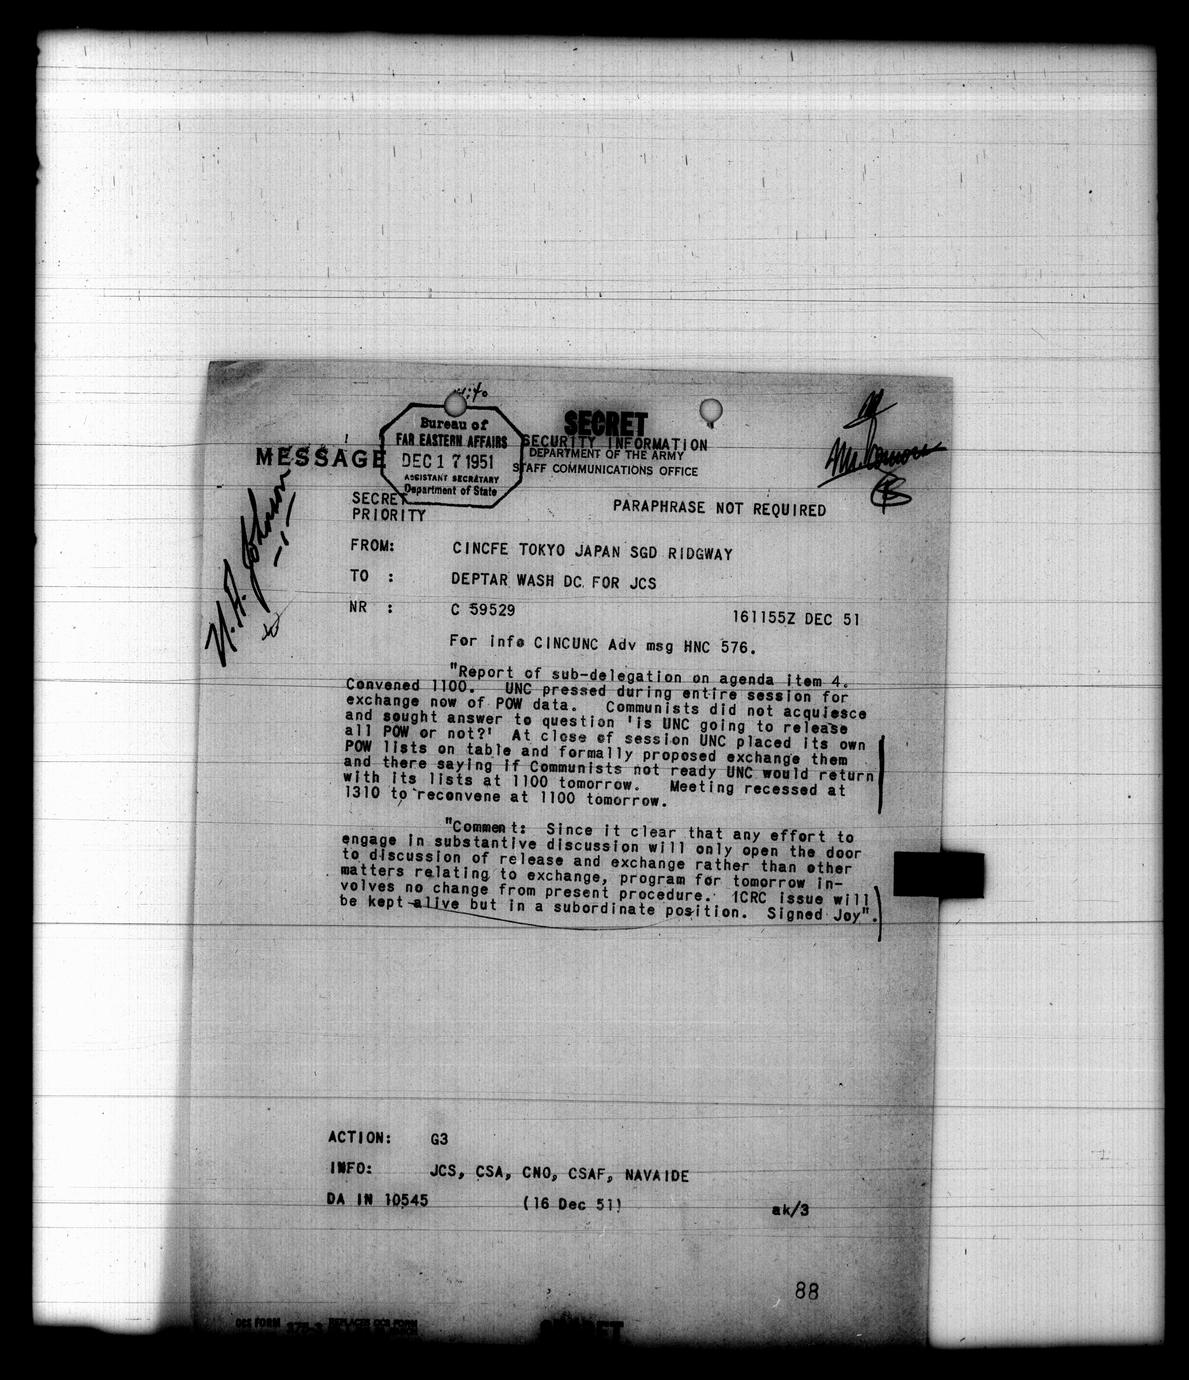 SECRET
Bureau of
FAR EASTERN AFFAIRS
DEC 17 1951
ASSISTANT SECRETARY
Department of State
SECURITY INFORMATION
MESSAGE
DEPARTMENT OF THE ARMY
STAFF COMMUNICATIONS OFFICE
U. A. Johnson
SECRET
PRIORITY
PARAPHRASE NOT REQUIRED
FROM: CINCFE TOKYO JAPAN SGD RIDGWAY
TO : DEPTAR WASH DC FOR JCS
NR : C 59529 161155Z DEC 51
For info CINCUNC Adv msg HNC 576.
"Report of sub-delegation on agenda item 4.
Convened 1100. UNC pressed during entire session for
exchange now of POW data. Communists did not acquiesce
and sought answer to question 'is UNC going to release
all POW or not?' At close of session UNC placed its own
POW lists on table and formally proposed exchange them
and there saying if Communists not ready UNC would return
with its lists at 1100 tomorrow. Meeting recessed at
1310 to reconvene at 1100 tomorrow.
"Comment: Since it clear that any effort to
engage in substantive discussion will only open the door
to discussion of release and exchange rather than other
matters relating to exchange, program for tomorrow in-
volves no change from present procedure. ICRC issue will
be kept alive but in a subordinate position. Signed Joy".
ACTION: G3
INFO: JCS, CSA, CNO, CSAF, NAVAIDE
DA IN 10545 (16 Dec 51) ak/3
88
OCS FORM 375-3 REPLACES OCS FORM
SECRET